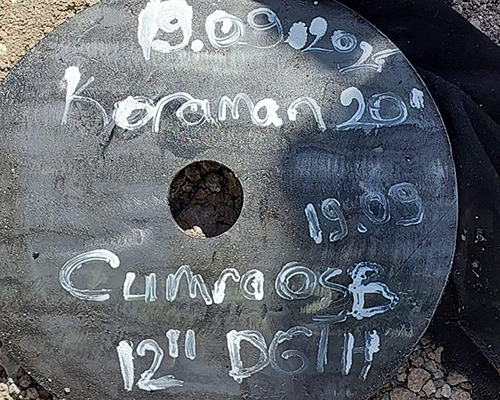 19.09.2024
Karaman 20"
19.09
Cumra OSB
12" DGTH